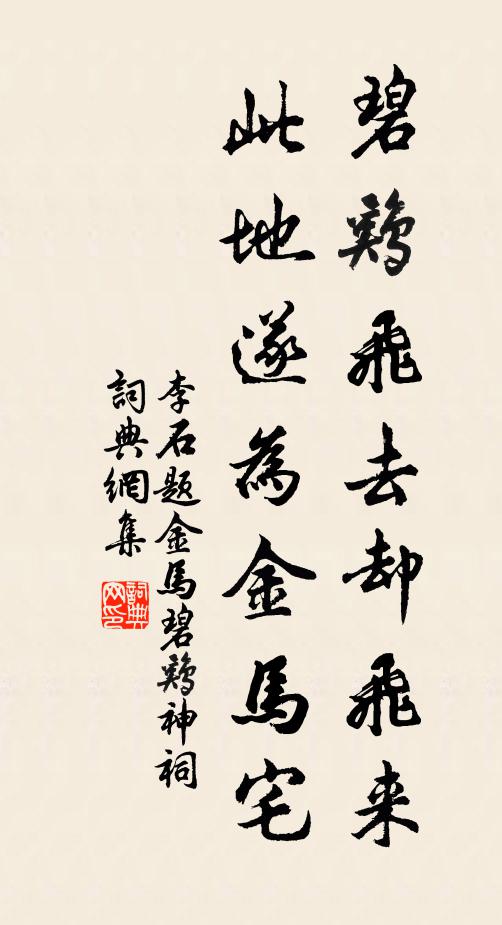 碧鷄飛去却飛来
此地遂為金馬宅
李石题金馬碧鷄神祠
詞典網集
詞典網印